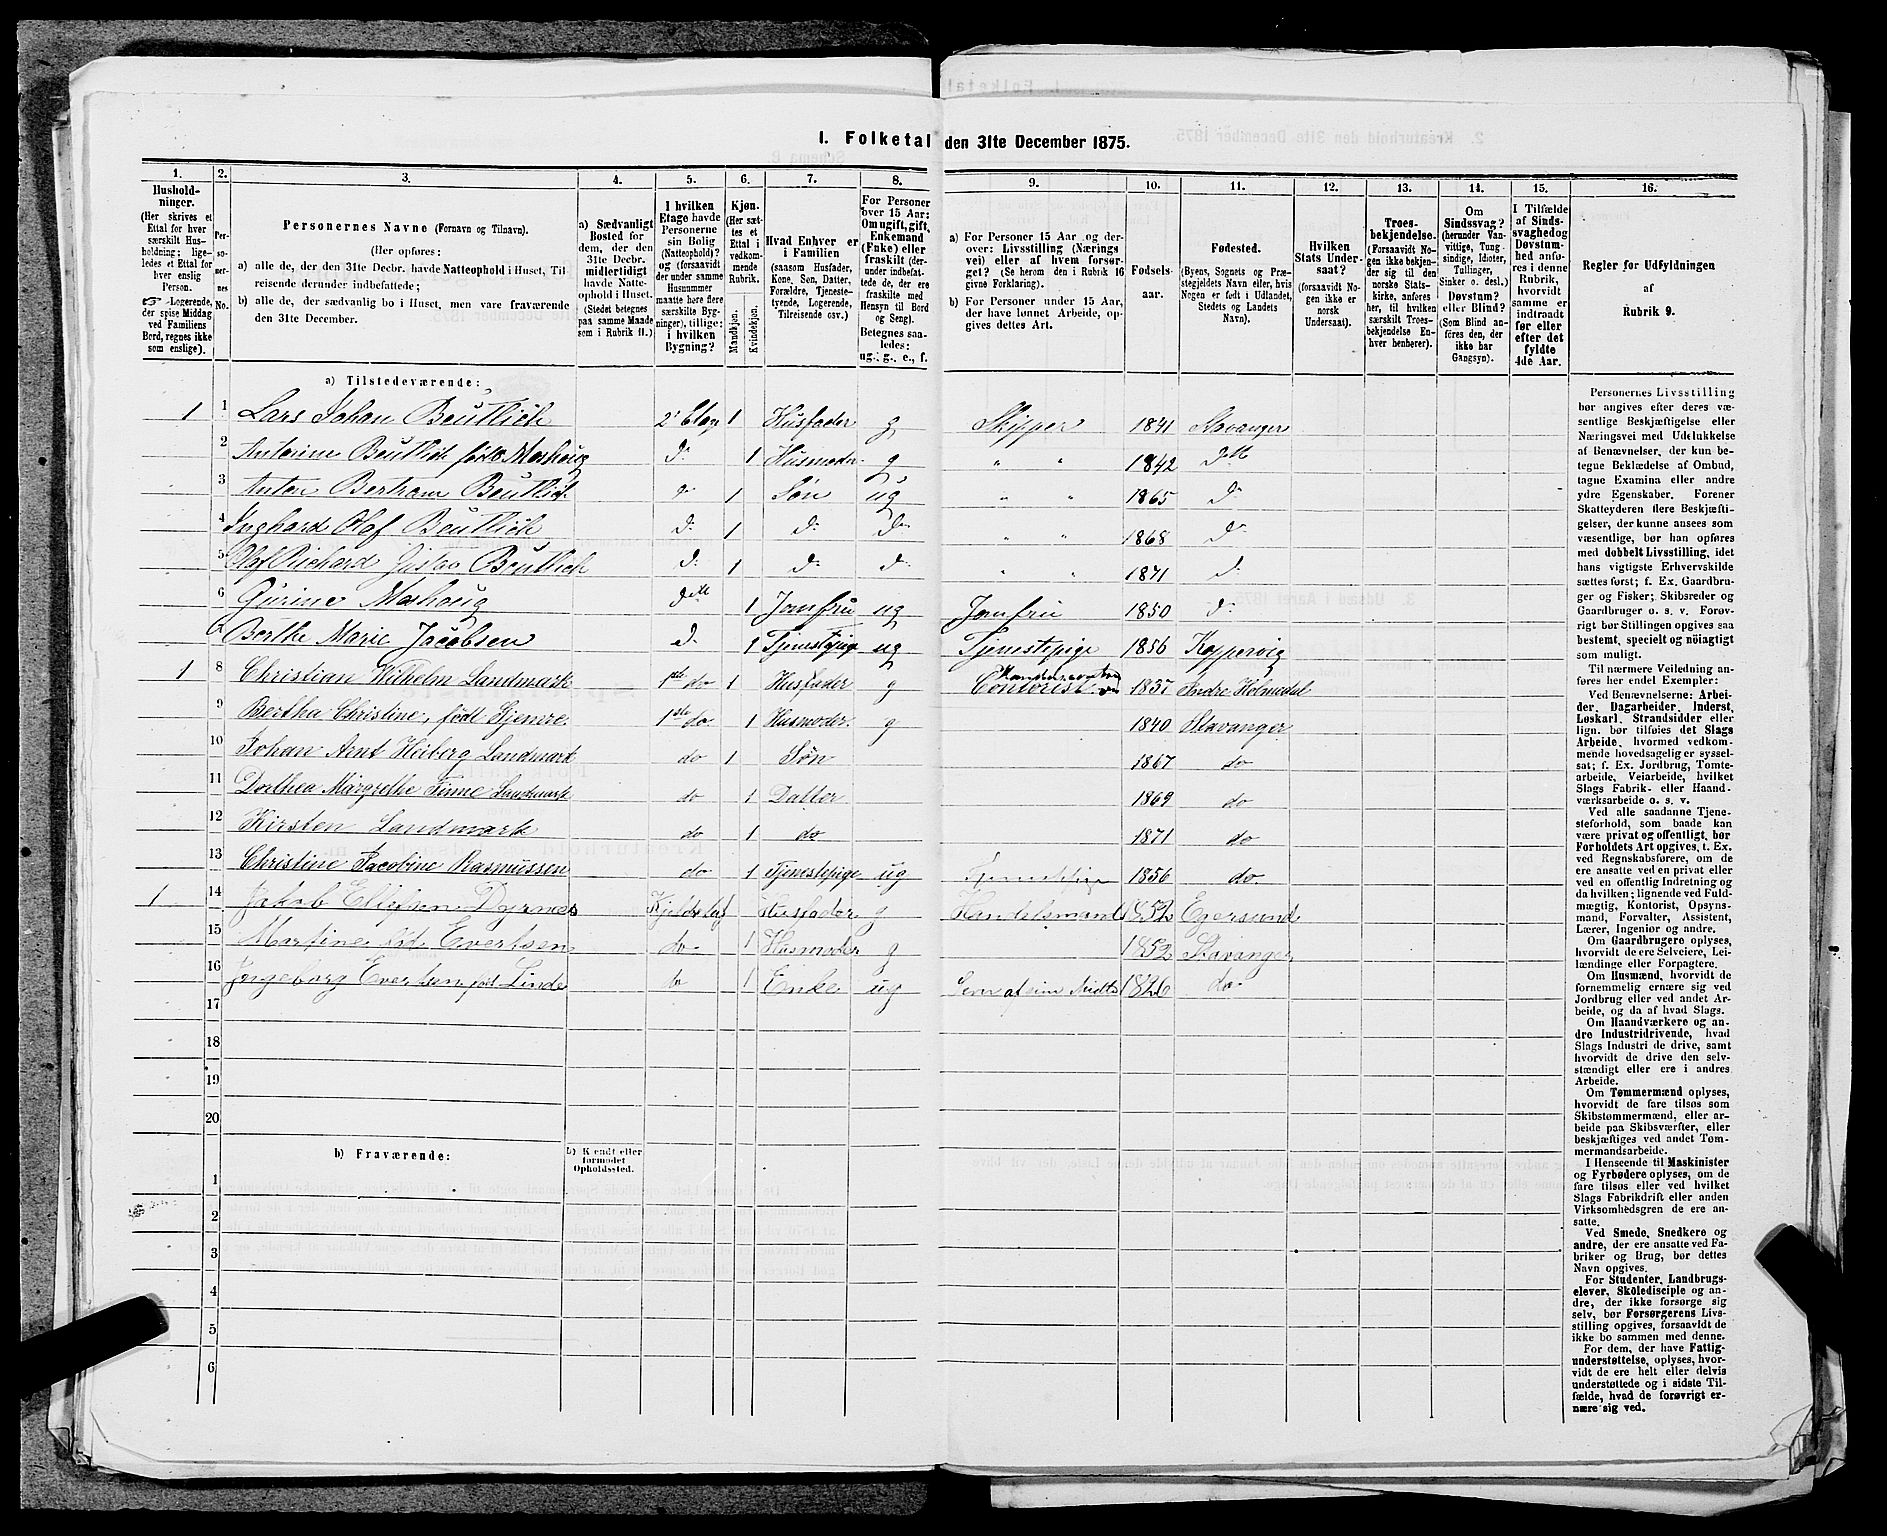 I. Folketal den 31te December 1875.
1. 2. 3. 4. 5. 6. 7. 8. 9. 10. 11. 12. 13. 14. 15. 16.
Husholdninger.
(Her skrives et Ettal for hver særskilt Husholdning; ligeledes et Ettal for hver enslig Person.
Logerende, der spise Middag ved Familiens Bord, regnes ikke som enslige).
Personernes No.
Personernes Navne (Fornavn og Tilnavn).
(Her opføres:
a) alle de, der den 31te Decbr. havde Natteophold i Huset, Tilreisende derunder indbefattede;
b) alle de, der sædvanlig bo i Huset, men vare fraværende den 31te December.
a) Sædvanligt Bosted for dem, der den 31te Decbr. midlertidigt havde Natteophold i Huset.
(Stedet betegnes paa samme Maade som i Rubrik 11.)
I hvilken Etage havde Personerne sin Bolig (Natteophold)? og (forsaavidt der under samme Husnummer maatte høre flere særskilte Bygninger), tillige: i hvilken Bygning?
Kjøn.
(Her sættes et Ettal i vedkommende Rubrik.
Mandkjøn. Kvindekjøn.
Hvad Enhver er i Familien
(saasom Husfader, Kone, Søn, Datter, Forældre, Tjenestetyende, Logerende, Tilreisende osv.)
For Personer over 15 Aar: Om ugift, gift, Enkemand (Enke) eller fraskilt (derunder indbefattede de, der ere fraskilte med Hensyn til Bord og Seng).
Betegnes saaledes: ug., g., e., f.
a) For Personer 15 Aar og derover: Livsstilling (Næringsvei) eller af hvem forsørget? (Se herom den i Rubrik 16 givne Forklaring).
b) For Personer under 15 Aar, der have lønnet Arbeide, opgives dettes Art.
Fødselsaar.
Fødested.
(Byens, Sognets og Præstegjeldets Navn eller, hvis Nogen er født i Udlandet, Stedets og Landets Navn).
Hvilken Stats Undersaat?
(forsaavidt Nogen ikke er norsk Undersaat).
Troesbekjendelse.
(Forsaavidt Nogen ikke bekjender sig til den norske Statskirke, anføres her, til hvilken særskilt Troesbekjendelse Enhver henhører).
Om Sindssvag?
(herunder Vanvittige, Tungsindige, Idioter, Tullinger, Sinker o. desl.)
Døvstum? eller Blind?
(Som Blind anføres den, der ikke har Gangsyn).
I Tilfælde af Sindssvaghed og Døvstumhed anføres i denne Rubrik, hvorvidt samme er indtraadt før eller efter det fyldte 4de Aar.
Regler for Udfyldningen af Rubrik 9.
a) Tilstedeværende:
1 1 Lars Johan Beutlich 2' Etage 1 Husfader g Skipper 1841 Stavanger
2 Antonine Beutlich født Moshoug D° 1 Husmoder g " " 1842 Dtt
3 Anton Bertram Beutlich D° 1 Søn ug " " 1865 D°
4 Inghard Olaf Beutlich D° 1 D° D° " " 1868 D°
5 Olaf Richard Beutlich D° 1 D° D° " " 1871 D°
6 Gurine Moshoug Dtt 1 Jomfru ug Jomfru 1850 D°
7 Berthe Marie Jacobsen D° 1 Tjenestepige ug Tjenestepige 1856 Koppervig
1 8 Christian Wilhelm Landmark 1ste do 1 Husfader g Contorist 1837 Indre Holmedal
9 Bertha Christine, født 1ste do 1 Husmoder g 1840 Stavanger
10 Johan Arnt Heiberg Landmark do 1 Søn 1867 do
11 Dorthea Margrethe Finne Landmark do 1 Datter 1869 do
12 Kirsten Landmark do 1 do 1871 do
13 Christine Jacobine Rasmussen do 1 Tjenestepige ug Tjenestepige 1856 do
1 14 Jakob Ellefsen Dyrnes Husfader g Handelsmand 1852 Egersund
15 Martine fød Evertsen do 1 Husmoder g 1852 Stavanger
16 Ingeborg Evertsen fød Linde do 1 Enke ug Lever af sine Midler 1826 do
17
18
19
20
b) Fraværende:
b) Kjendt eller formodet Opholdssted.
1
2
3
4
5
6
Personernes Livsstilling
bør angives efter deres væ-
sentlige Beskjæftigelse eller
Næringsvei med Udelukkelse
af Benævnelser, der kun be-
tegne Beklædelse af Ombud,
tagne Examina eller andre
ydre Egenskaber. Forener
Skatteyderen flere Beskjæfti-
gelser, der kunne ansees som
væsentlige, bør han opføres
med dobbelt Livsstilling, idet
hans vigtigste Erhvervskilde
sættes først; f. Ex. Gaardbru-
ger og Fisker; Skibsreder og
Gaardbruger o. s. v. Forøv-
rigt bør Stillingen opgives saa
bestemt, specielt og nöiagtigt
som muligt.
Til nærmere Veiledning an-
føres her endel Exempler:
Ved Benævnelserne: Arbei-
der, Dagarbeider, Inderst,
Løskarl, Strandsidder eller
lign. bør tilføies det Slags
Arbeide, hvormed vedkom-
mende hovedsagelig er syssel-
sat; f. Ex. Jordbrug, Tomte-
arbeide, Veiarbeide, hvilket
Slags Fabrik- eller Haand-
værksarbeide o. s. v.
Ved alle saadanne Tjene-
steforhold, som baade kan
være privat og offentligt, bør
Forholdets Art opgives, t. Ex.
ved Regnskabsførere, om de
ere ansatte ved en privat eller
ved en offentlig Indretning og
da hvilken; lignende ved Fuld-
mægtig, Kontorist, Opsyns-
mand, Forvalter, Assistent,
Lærer, Ingenior og andre.
Om Gaardbrugere oplyses,
hvorvidt de ere Selveiere, Lei-
lændinge eller Forpagtere.
Om Husmænd, hvorvidt de
fornemmelig ernære sig ved
Jordbrug eller ved andet Ar-
beide, og da af hvad Slags.
Om Haandværkere og an-
dre Industridrivende, hvad
Slags Industri de drive, samt
hvorvidt de drive den selv-
stændigt eller ere i andres
Arbeide.
Om Tømmermænd oplyses,
hvorvidt de fare tilsøs som
Skibstømmermænd, eller ar-
beide paa Skibsværfter, eller
beskjæftiges ved andet Töm-
mermandsarbeide.
I Henseende til Maskinister
og Fyrbødere oplyses, om de
fare tilsøs eller ved hvilket
Slags Fabrikdrift eller anden
Virksomhedsgren de ere an-
satte.
Ved Smede, Snedkere og
andre, der ere ansatte ved Fa-
briker og Brug, bør dettes
Navn opgives.
For Studenter, Landbrugs-
elever, Skoledisciple og an-
dre, der ikke forsørge sig
selv, bør Forsørgerens Livs-
stilling opgives, forsaavidt de
ikke bo sammen med denne.
For dem, der have Fattig-
understøttelse, oplyses, hvor-
vidt de ere helt eller delvis
understøttede og i sidste Til-
fælde, hvad de forøvrigt er-
nære sig ved.